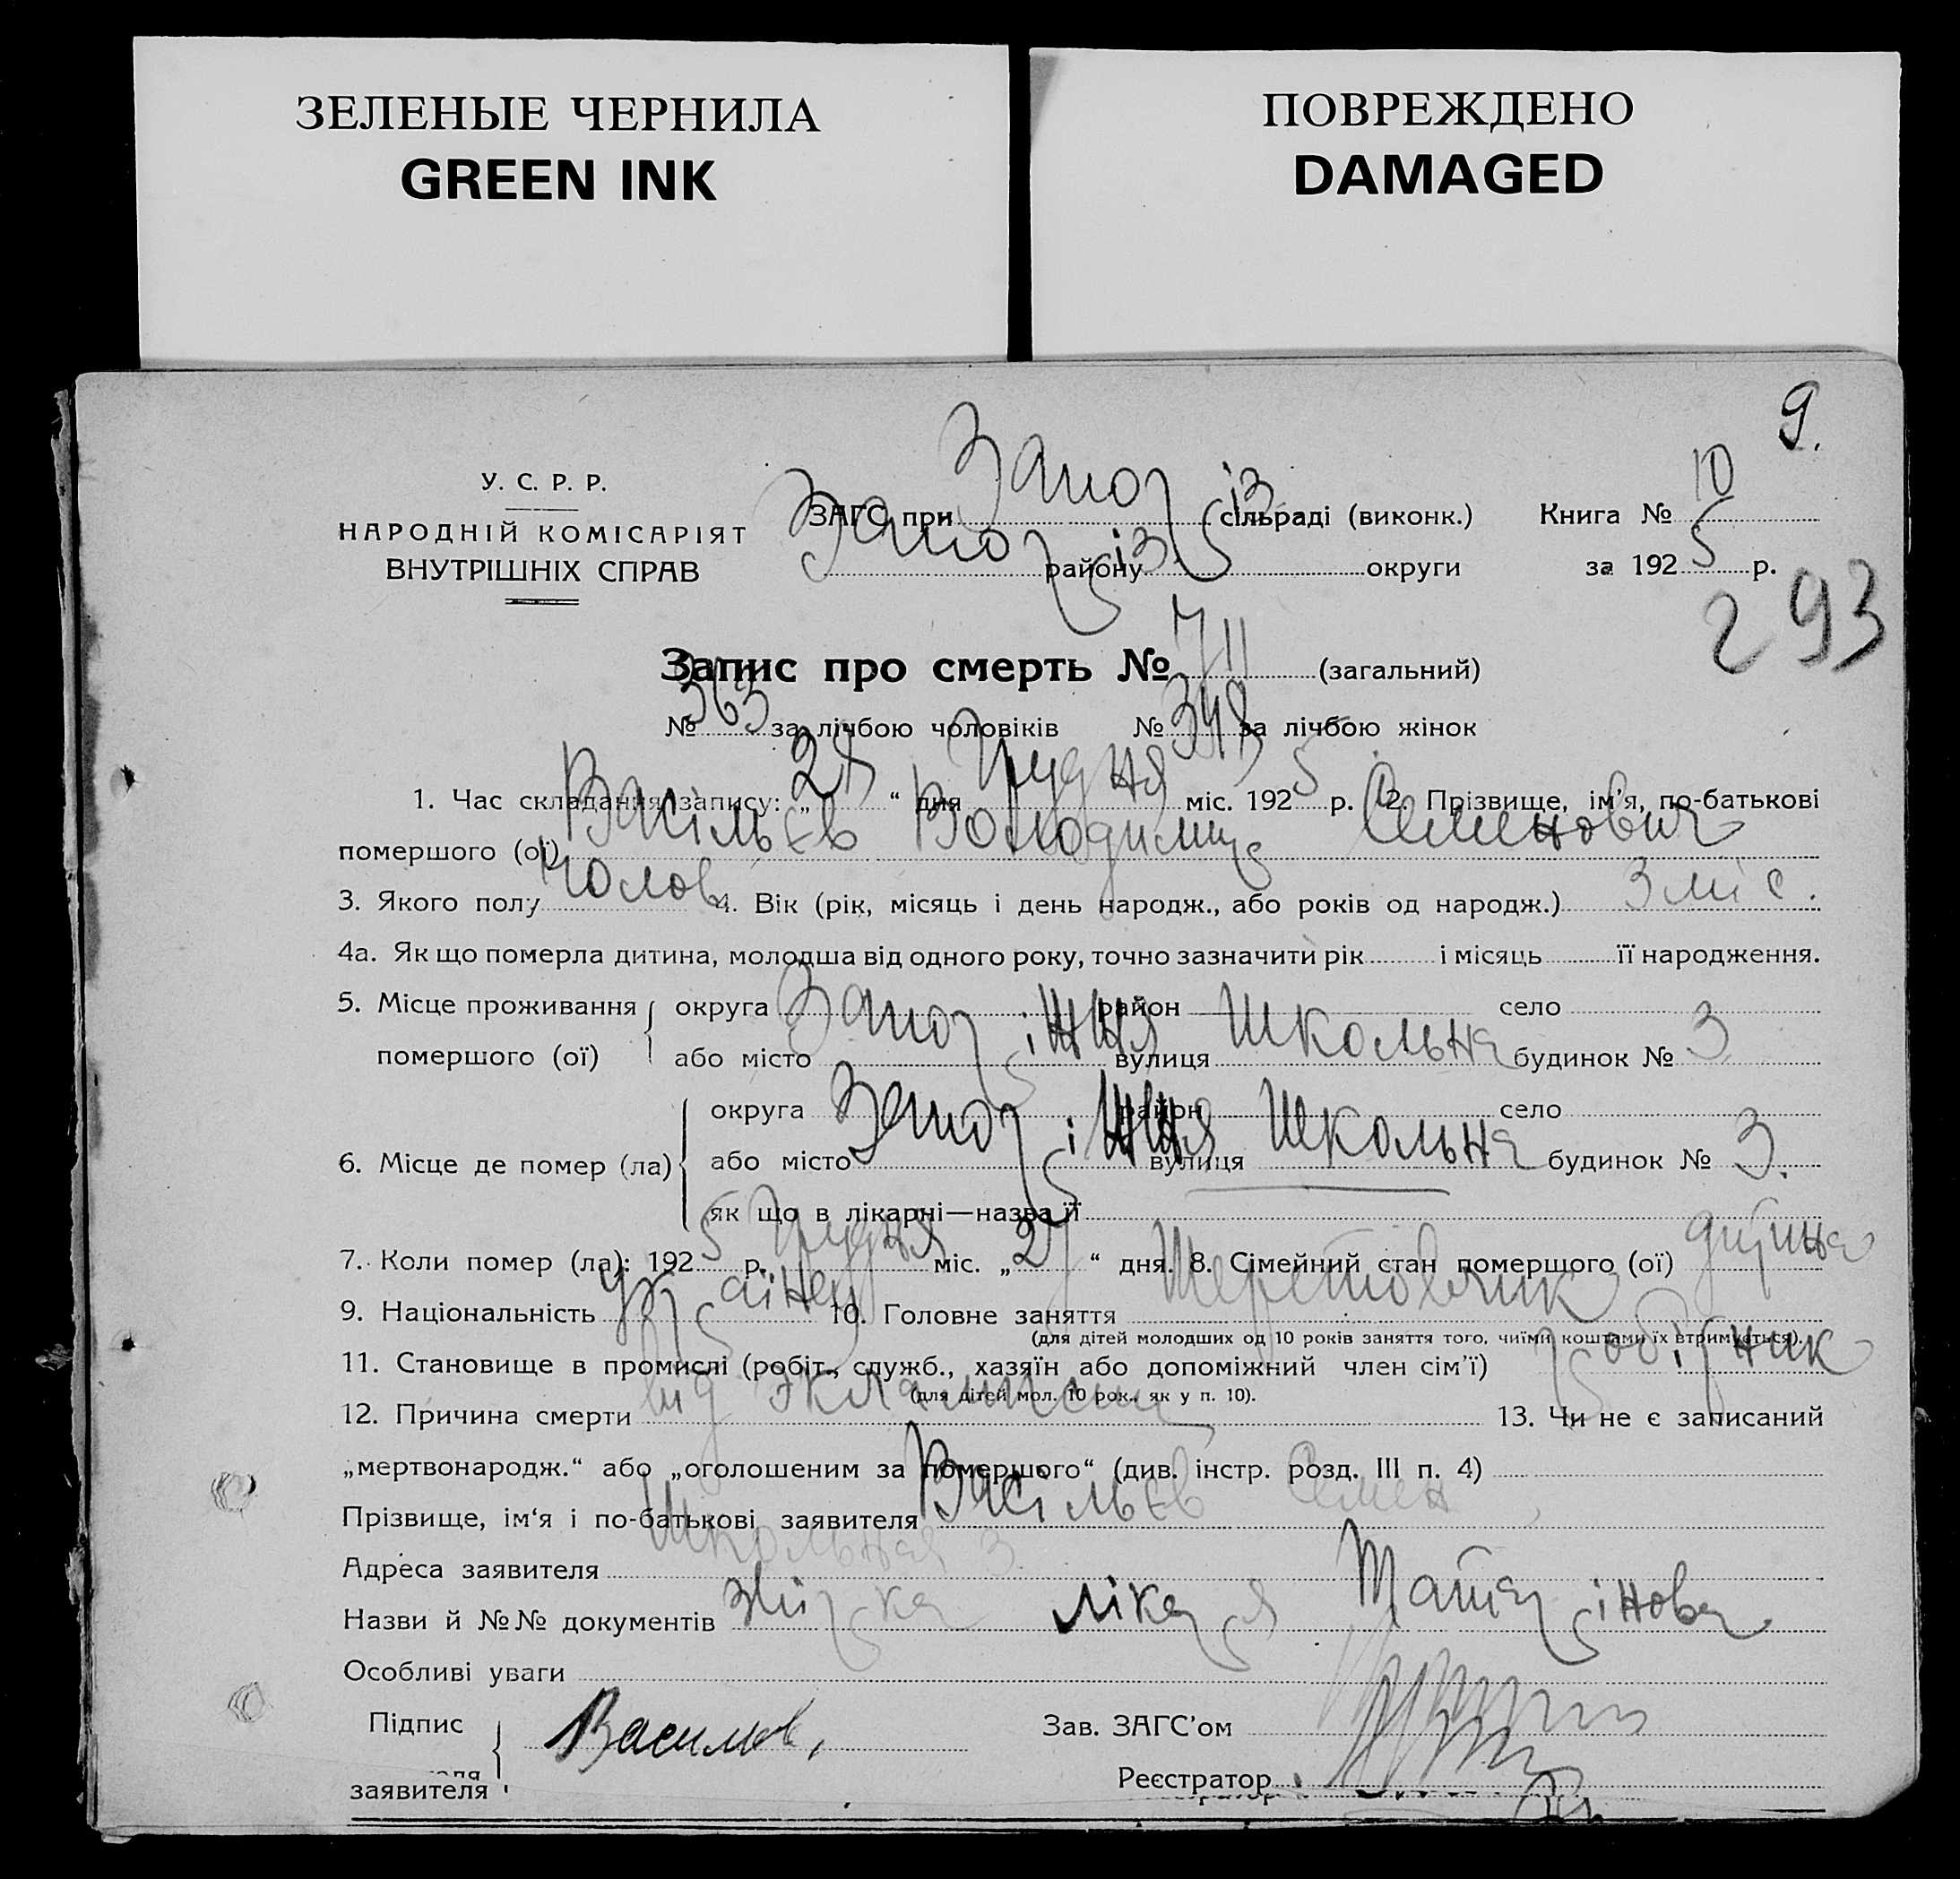 ЗЕЛЕНЫЕ ЧЕРНИЛА
GREEN INK
ПОВРЕЖДЕНО
DAMAGED
9.
У. С. Р. Р.
НАРОДНІЙ КОМІСАРІЯТ
ВНУТРІШНІХ СПРАВ
ЗАГС при Запоріз сільраді (виконк.)
Запоріз району округи
Книга № 10
за 1925 р.
293
Запис про смерть № 711 (загальний)
№ 363 за лічбою чоловіків № 348 за лічбою жінок
1. Час складання запису: „28“ дня Грудня міс. 1925 р. 2. Прізвище, ім'я, по-батькові
помершого (ої) Васільєв Володимир Семенович
3. Якого полу Чолов 4. Вік (рік, місяць і день народж., або років од народж.) 3 міс.
4а. Як що померла дитина, молодша від одного року, точно зазначити рік і місяць її народження.
5. Місце проживання помершого (ої) округа район село
або місто Запоріжжя вулиця Школьна будинок № 3
6. Місце де помер (ла) округа район село
або місто Запоріжжя вулиця Школьна будинок № 3.
як що в лікарні—назва її
7. Коли помер (ла): 1925 р. Грудня міс. „27“ дня. 8. Сімейний стан помершого (ої) дитина
9. Національність українец 10. Головне заняття Шеретовчик
(для дітей молодших од 10 років заняття того, чиїми коштами їх втримується).
11. Становище в промислі (робіт., служб., хазяїн або допоміжний член сім'ї) робітник
(для дітей мол. 10 рок., як у п. 10).
12. Причина смерти від эклампсии 13. Чи не є записаний
„мертвонародж.“ або „оголошеним за помершого“ (див. інстр. розд. III п. 4)
Прізвище, ім'я і по-батькові заявителя Васільєв Семен
Адреса заявителя Школьная 3
Назви й №№ документів лікаря
Особливі уваги
Підпис заявителя
Зав. ЗАГС'ом
Реєстратор